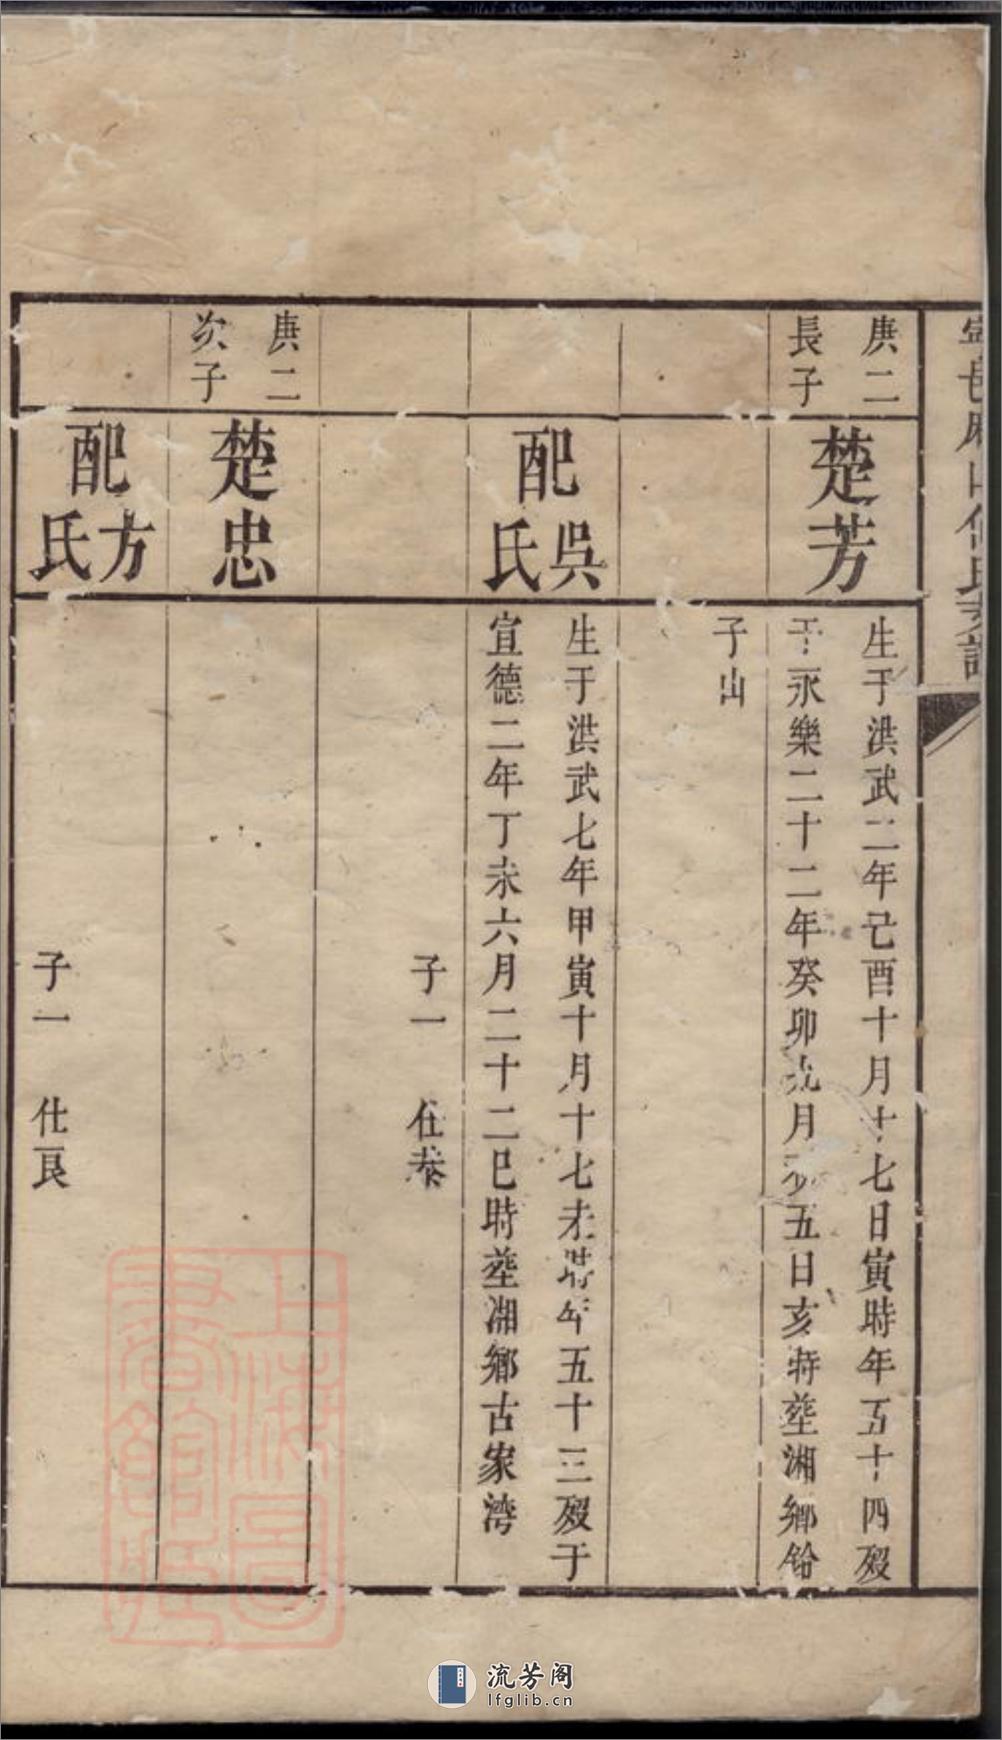 庚二
長子
楚芳
生于洪武二年己酉十月十七日寅時年五十四歿
于永樂二十二年癸卯九月 五日亥時塟湘鄉鉛
子山
配吳氏
生于洪武七年甲寅十月十七未時年五十三歿于
宣德二年丁未六月二十二巳時塟湘鄉古家湾
子一 仕泰
庚二
次子
楚忠
配方氏
子一 仕良
上海圖
書館藏
流芳阁
lfglib.cn